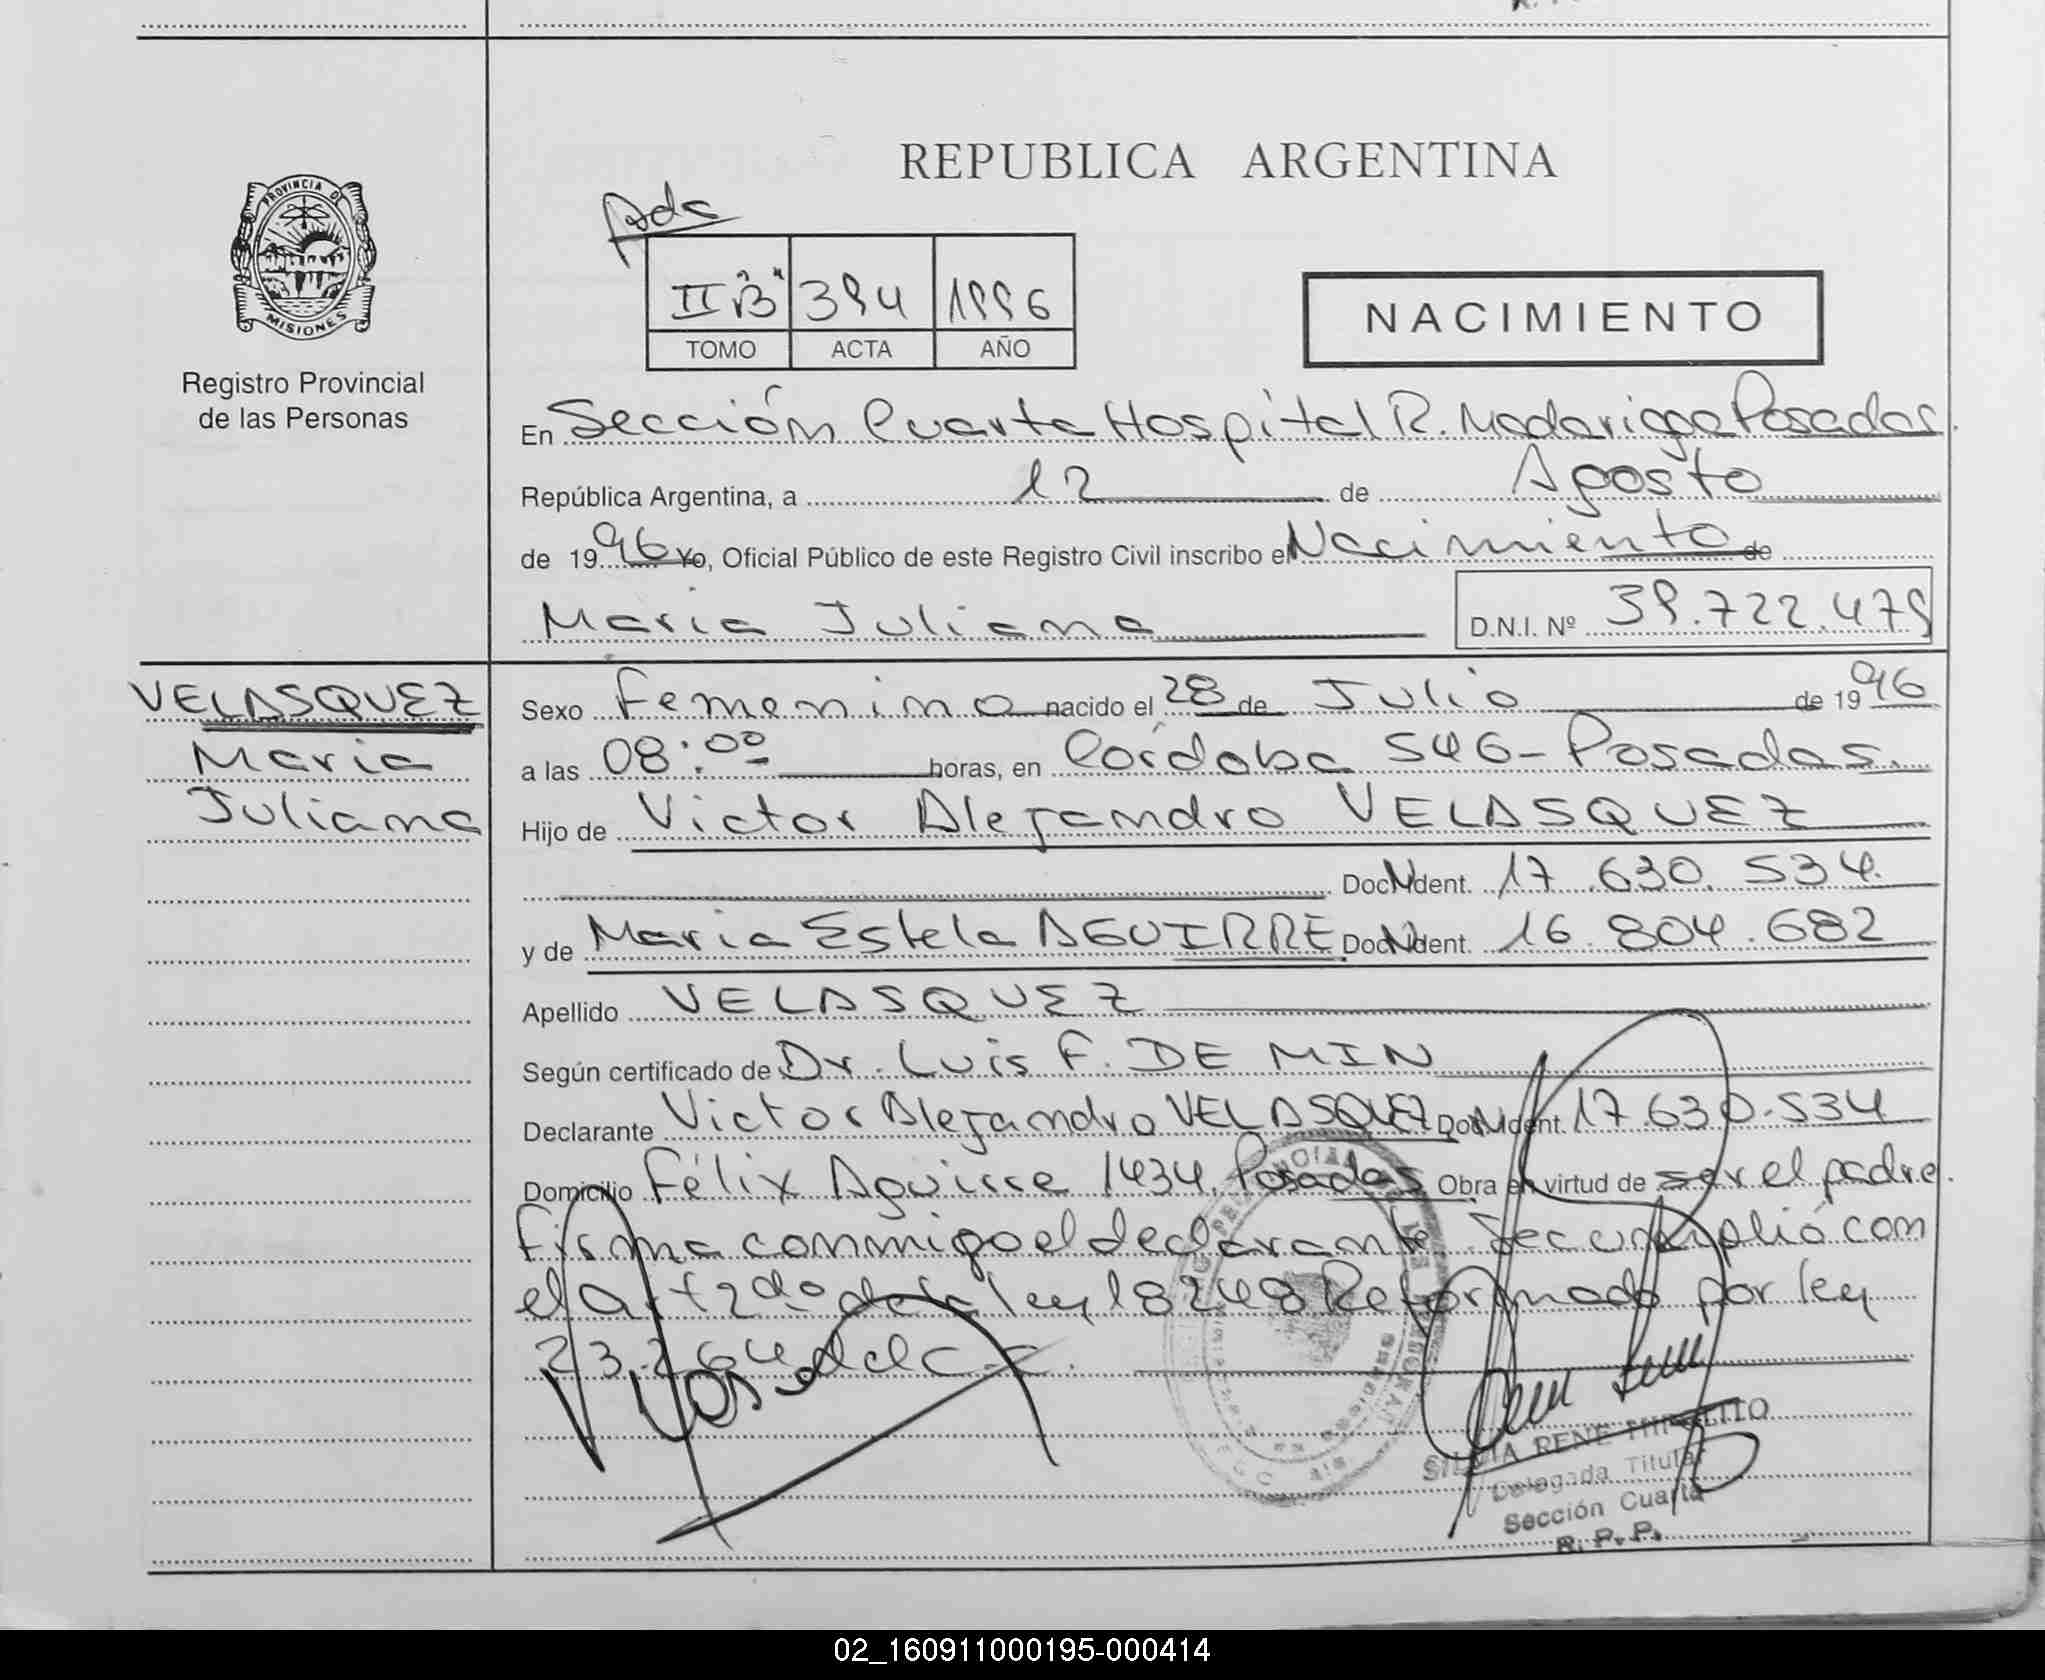 REPUBLICA ARGENTINA
PROVINCIA DE
MISIONES
Registro Provincial
de las Personas
Ads
II "B" 394 1996
TOMO ACTA AÑO
NACIMIENTO
En Sección Cuarta Hospital R. Madariaga Posadas.
República Argentina, a 12 de Agosto
de 1996 Yo, Oficial Público de este Registro Civil inscribo el Nacimiento de
Maria Juliana D.N.I. Nº 39.722.479
VELASQUEZ
Maria
Juliana
Sexo Femenino nacido el 28 de Julio de 1996
a las 08:00 horas, en Córdoba 546 - Posadas.
Hijo de Victor Alejandro VELASQUEZ
Doc. Ident. 17.630.534.
y de Maria Estela AGUIRRE Doc. Ident. 16.804.682
Apellido VELASQUEZ
Según certificado de Dr. Luis F. DE MIN
Declarante Victor Alejandro VELASQUEZ Doc. Ident. 17.630.534
Domicilio Félix Aguirre 1434. Posadas Obra en virtud de ser el padre.
Firma conmigo el declarante. Se cumplió con
el Art 2do. de la ley 18248 Reformado por ley
23.264 del C.C.
SILVIA RENE HIPOLITO
Delegada Titular
Sección Cuarta
R. P. P.
02_160911000195-000414